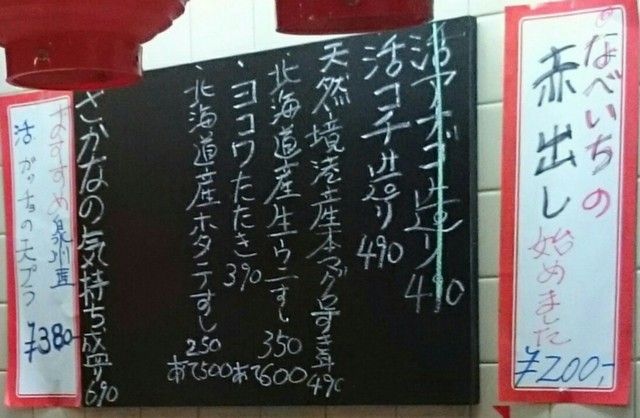 なべいちの
赤出し
始めました
¥200,-
活アオゴ造り 410
活コチ造り 490
天然・境港産本マグロすき身 490
北海道産生ウニすし 350 あて600
・ヨコワたたき 390
・北海道産ホタテすし 250 あて500
さかなの気持ち盛 690
おすすめ泉州産
活ガッチョの天プラ
¥380